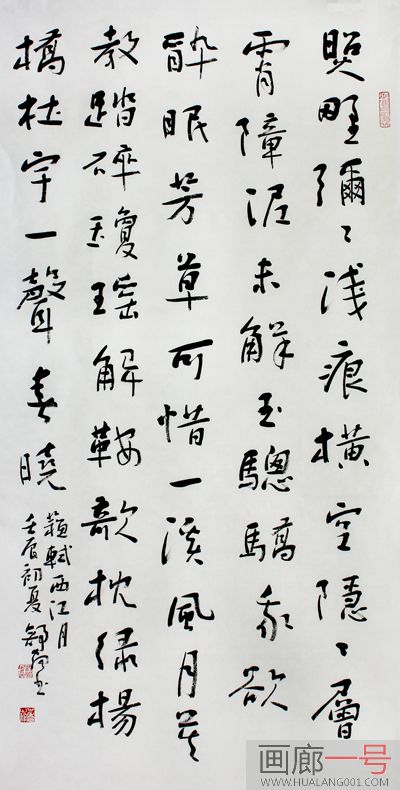 照野彌々浅痕橫空隱々層
霄障泥未解玉驄驕我欲
醉眠芳草可惜一溪風月莫
教踏碎瓊瑤解鞍欹枕绿楊
橋杜宇一聲春曉
蘇軾西江月
壬辰初夏
画廊一号
WWW.HUALANG001.COM